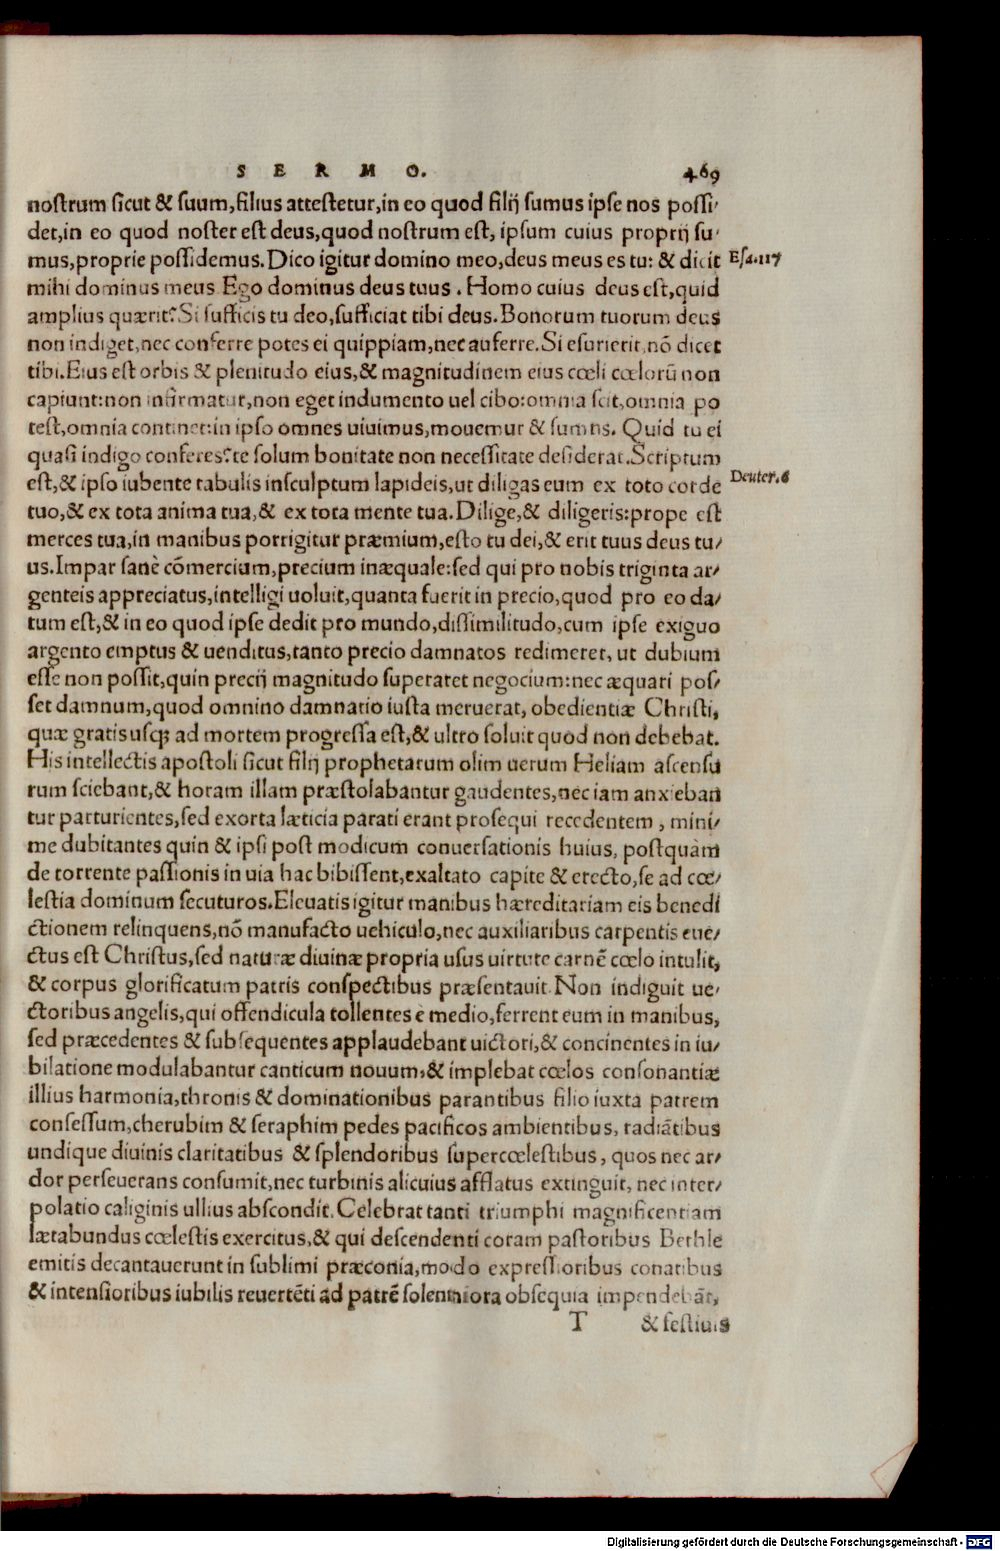 S E R M O. 469
nostrum sicut & suum,filius attestetur,in eo quod filij sumus ipse nos possi-
det,in eo quod noster est deus,quod nostrum est, ipsum cuius proprij su-
mus,proprie possidemus.Dico igitur domino meo,deus meus es tu: & dicit Esa.117
mihi dominus meus Ego dominus deus tuus. Homo cuius deus est,quid
amplius quærit?Si sufficis tu deo,sufficiat tibi deus.Bonorum tuorum deus
non indiget,nec conferre potes ei quippiam,nec auferre.Si esurierit,nō dicet
tibi.Eius est orbis & plenitudo eius,& magnitudinem eius cœli cœlorū non
capiunt:non infirmatur,non eget indumento uel cibo:omnia scit,omnia po
test,omnia continet:in ipso omnes uiuimus,mouemur & sumus. Quid tu ei
quasi indigo conferes?te solum bonitate non necessitate desiderat.Scriptum
est,& ipso iubente tabulis insculptum lapideis,ut diligas eum ex toto corde Deuter.6
tuo,& ex tota anima tua,& ex tota mente tua.Dilige,& diligeris:prope est
merces tua,in manibus porrigitur præmium,esto tu dei,& erit tuus deus tu-
us.Impar sanè cōmercium,precium inæquale:sed qui pro nobis triginta ar-
genteis appreciatus,intelligi uoluit,quanta fuerit in precio,quod pro eo da-
tum est,& in eo quod ipse dedit pro mundo,dissimilitudo,cum ipse exiguo
argento emptus & uenditus,tanto precio damnatos redimeret, ut dubium
esse non possit,quin precij magnitudo superaret negocium:nec æquari pos-
set damnum,quod omnino damnatio iusta meruerat, obedientiæ Christi,
quæ gratis usq; ad mortem progressa est,& ultro soluit quod non debebat.
His intellectis apostoli sicut filij prophetarum olim uerum Heliam ascensu
rum sciebant,& horam illam præstolabantur gaudentes,nec iam anxieban
tur parturientes,sed exorta læticia parati erant prosequi recedentem, mini-
me dubitantes quin & ipsi post modicum conuersationis huius, postquàm
de torrente passionis in uia hac bibissent,exaltato capite & erecto,se ad cœ-
lestia dominum secuturos.Eleuatis igitur manibus hæreditariam eis benedi
ctionem relinquens,nō manufacto uehiculo,nec auxiliaribus carpentis eue-
ctus est Christus,sed naturæ diuinæ propria usus uirtute carnē cœlo intulit,
& corpus glorificatum patris conspectibus præsentauit.Non indiguit ue-
ctoribus angelis,qui offendicula tollentes è medio,ferrent eum in manibus,
sed præcedentes & subsequentes applaudebant uictori,& concinentes in iu-
bilatione modulabantur canticum nouum,& implebat cœlos consonantiæ
illius harmonia,thronis & dominationibus parantibus filio iuxta patrem
consessum,cherubim & seraphim pedes pacificos ambientibus, radiātibus
undique diuinis claritatibus & splendoribus supercœlestibus, quos nec ar-
dor perseuerans consumit,nec turbinis alicuius afflatus extinguit, nec inter-
polatio caliginis ullius abscondit.Celebrat tanti triumphi magnificentiam
lætabundus cœlestis exercitus,& qui descendenti coram pastoribus Bethle
emitis decantauerunt in sublimi præconia,modo expressioribus conatibus
& intensioribus iubilis reuertēti ad patrē solemniora obsequia impendebāt,
T & festiuis
Digitalisierung gefördert durch die Deutsche Forschungsgemeinschaft - DFG